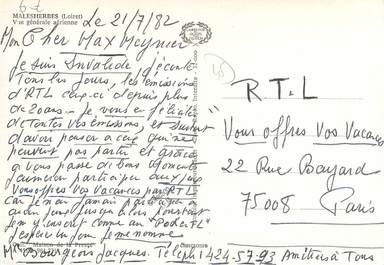 MALESHERBES (Loiret)
Vue générale aérienne
Le 21/7/82
Mon Cher Max Meynier
Je suis Invalide J'écoute
Tous les Jours, les émissions
d'RTL ceci depuis plus
de 20 ans - Je vous félicite
de toutes vos émissions et surtout
d'avoir pensé à ceux qui ne
peuvent pas partir et
à vous passe de bons moments
J'aimerais participer aux jeux
Vous offres Vos Vacances par RTL
car je n'ai jamais participé à
aucun jeux jusqu'alors pourtant
J'espère un jour être nommé
Mr Bourgeois Jacques. Téléph 1424-57-93 Amitiés à Tous
R.T.L
Vous offres Vos Vacances
22 Rue Bayard
75008 Paris